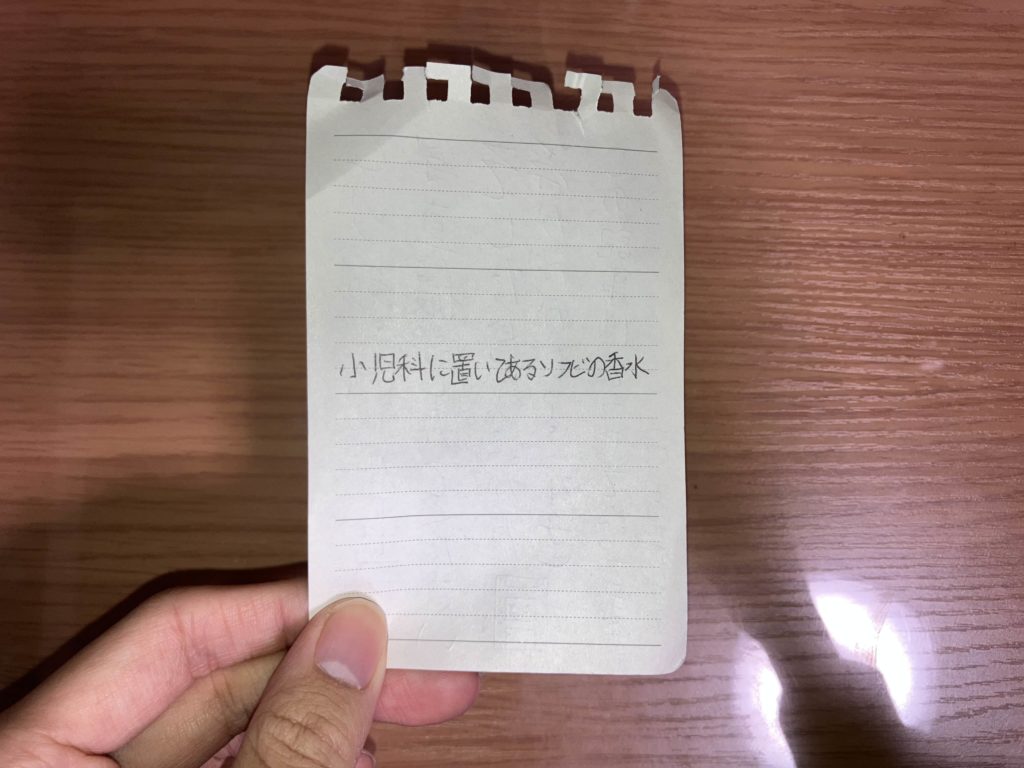 小児科に置いてあるソフビの香水